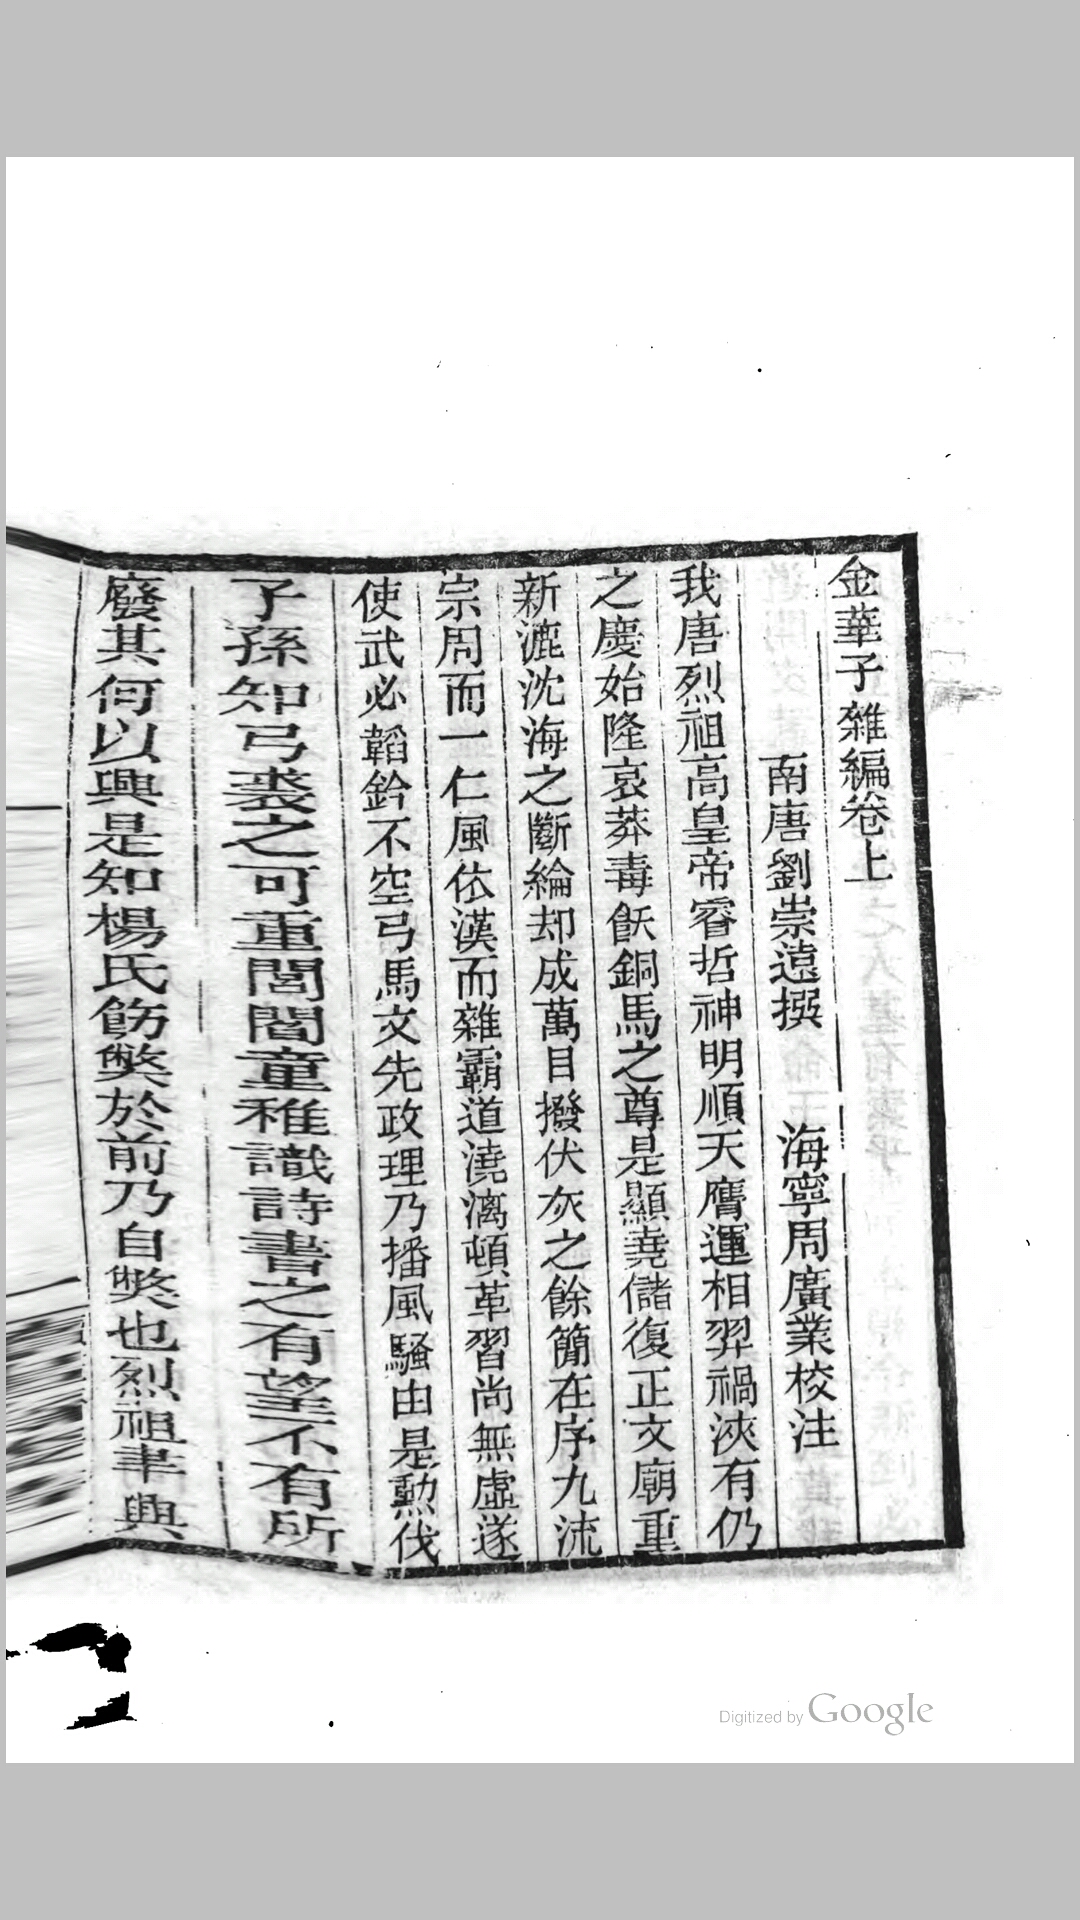 金華子雜編卷上
南唐劉崇遠撰　海寧周廣業校注
我唐烈祖高皇帝睿哲神明順天膺運相羿禍浹有仍
之慶始隆哀莽毒飫銅馬之尊是顯堯儲復正文廟重
新漉沈海之斷綸却成萬目撥伏灰之餘簡在序九流
宗周而一仁風依漢而雜霸道澆漓頓革習尚無虛遂
使武必韜鈐不空弓馬文先政理乃播風騷由是勲伐
子孫知弓裘之可重閭閻童稚識詩書之有望不有所
廢其何以興是知楊氏飭弊於前乃自弊也烈祖聿興
Digitized by Google